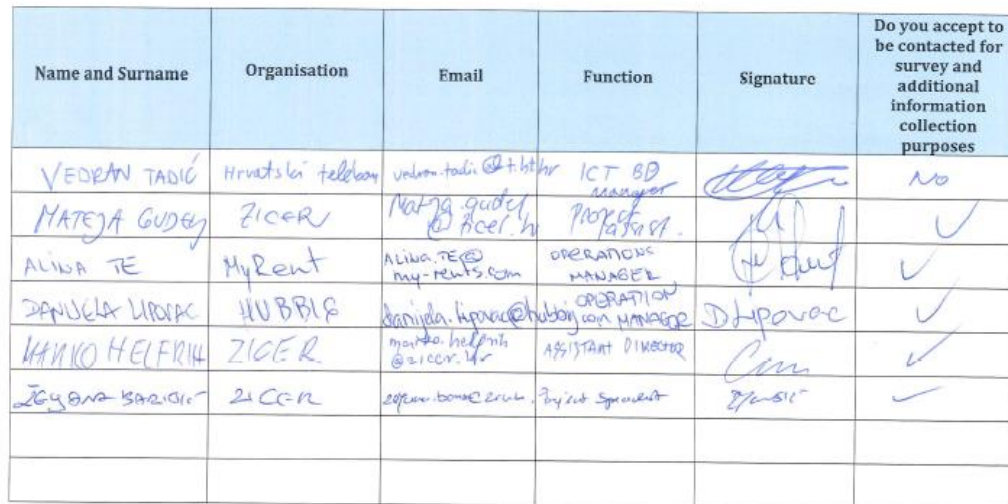 Name and Surname Organisation Email Function Signature Do you accept to be contacted for survey and additional information collection purposes
VEDRAN TADIĆ Hrvatski telekom vedran.tadic@t.ht.hr ICT BD manager NO
MATEJA GUDELJ ZICER @zicer.hr Project assist.
ALINA TE MyRent ALINA.TE@my-rents.com OPERATIONS MANAGER
DANIJELA LIPOVAC HUBBIG OPERATION MANAGER DLipovac
MARKO HELFRIH ZICER marko.helfrih@zicer.hr ASSISTANT DIRECTOR
ZICER Project